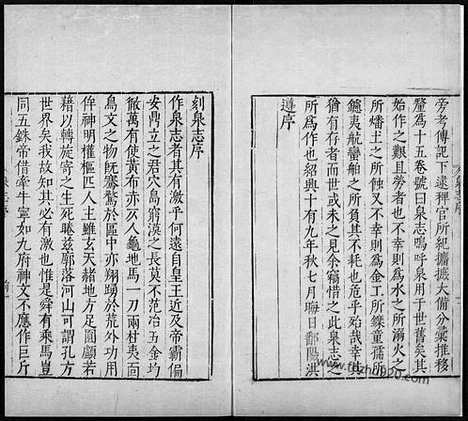 旁考傳記下逮稗官所紀攟摭大備分彙推移
釐爲十五卷號曰泉志嗚呼泉用于世舊矣其
始作之艱且勞者也不幸則爲水之所溺火之
所燔土之所蝕又不幸則爲金工所鑠童孺所
鑢夷航蠻舶之所負其不耗也危乎殆哉幸其
猶有存者而世或未之見余竊惜之此泉志之
所爲作也紹興十有九年秋七月晦日鄱陽洪
遵序
刻泉志序
作泉志者其有激乎何遠自皇王近及帝霸偏
安鼎立之君穴島窮漠之長莫不范冶五金均
徹萬有使黃布亦三介龜地馬一刀兩村夷面
鳥文之物旣騫騖於區中亦翔踴於荒外功用
侔神明權樞匹人主雖玄天赭地方足圓顱若
藉以轉旋寄之生死睠茲廓落河山可謂孔方
世界矣我故知其必有激也惟是舜有乘馬豈
同五銖帝借牽牛寧如九府神文不應作巨斤